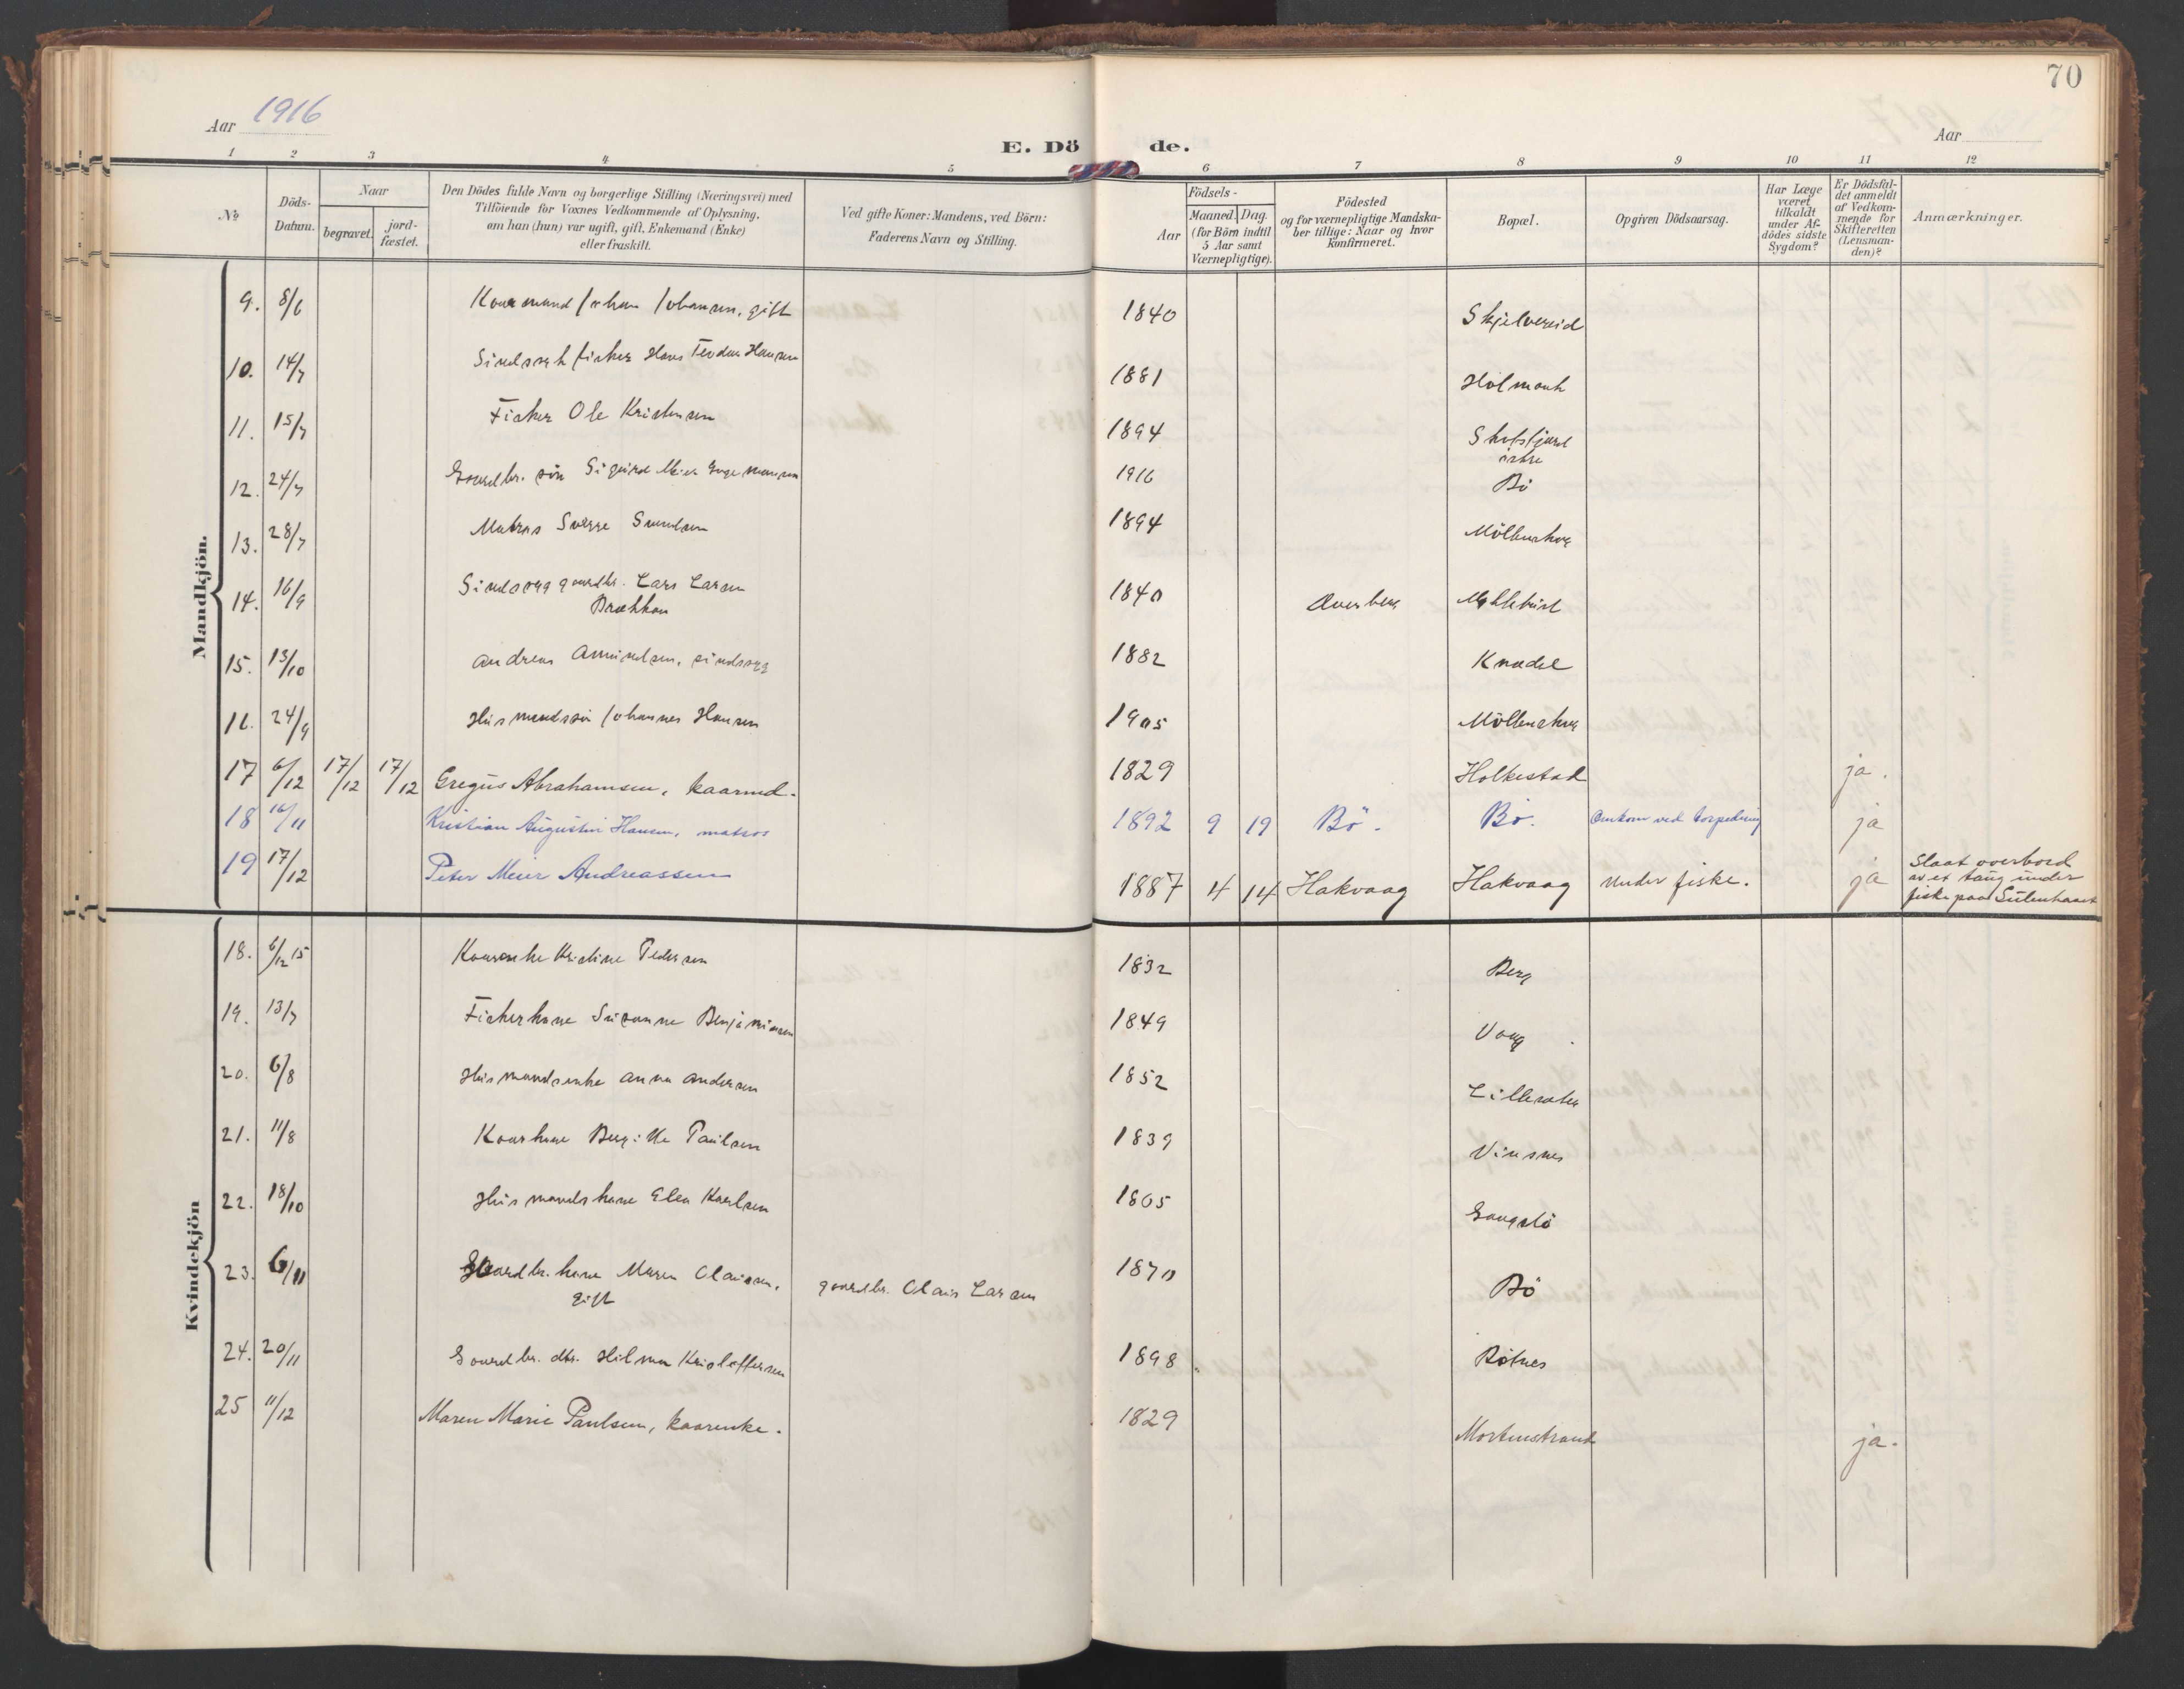 70
Aar 1916
Aar
E. Döde.
1 2 3 4 5 6 7 8 9 10 11 12
№
Döds-
Datum.
Naar
begravet.
jord-
fæstet.
Den Dödes fulde Navn og borgerlige Stilling (Næringsvei) med
Tilföiende for Voxnes Vedkommende af Oplysning,
om han (hun) var ugift, gift, Enkemand (Enke)
eller fraskilt.
Ved gifte Koner: Mandens, ved Börn:
Faderens Navn og Stilling.
Födsels-
Aar
Maaned. Dag.
(for Börn indtil
5 Aar samt
Værnepligtige).
Födested
og for værnepligtige Mandska-
ber tillige: Naar og hvor
konfirmeret.
Bopæl.
Opgiven Dödsaarsag.
Har Læge
været
tilkaldt
under Af-
dödes sidste
Sygdom?
Er Dödsfal-
det anmeldt
af Vedkom-
mende for
Skifteretten
(Lensman-
den)?
Anmærkninger.
Mandkjön.
9. 8/6 Kaarmand Johan Johansen, gift 1840 Skjelvereid
10. 14/7 Sindssyk fisker Hans Teodor Hansen 1881 Holmank
11. 15/7 Fisker Ole Kristensen 1894 Skotsfjord
indre
12. 24/7 Gaardbr. søn Sigurd Meier Ingemansen 1916 Bö
13. 28/7 Matros Sverre Svendsen 1894 Möllenskog
14. 16/9 Sindssyg gaardbr. Lars Larsen 1840
Brækkan
15. 13/10 Andreas Amundsen, sindssyg 1882 Knædel
16. 24/9 Husmandssön Johannes Hansen 1905 Möllenskog
17 6/12 17/12 17/12 Gregus Abrahamsen, kaarmd. 1829 Holkestad ja.
18 16/11 Kristian Augustin Hansen, matros 1892 9 19 Bö. Bö. Omkom ved torpedering ja
19 17/12 Peter Meier Andreassen 1887 4 14 Hakvaag Hakvaag Under fiske. ja Slaat overbord
av et taug under
fiske paa
Kvindekjön
18. 6/12 15 Kaarenke Kristine Pedersen 1832 Berg
19. 13/7 Fiskerkone Susanne Benjaminsen 1849 Vaag
20. 6/8 Husmandsenke Anna Andersen 1852
21. 11/8 Kaarkone Bergitte Paulsen 1839 Vinsnes
22. 18/10 Husmandskone Elea Karlsen 1865 Laugslö
23. 6/11 Gaardbr. kone Maren Clausen, gaardbr. Claus Larsen 1870 Bö
gift
24. 20/11 Gaardbr. dtr. Hilma Kristoffersen 1898 Botnes
25 11/12 Maren Marie Paulsen, kaarenke. 1829 Mortenstrand ja.